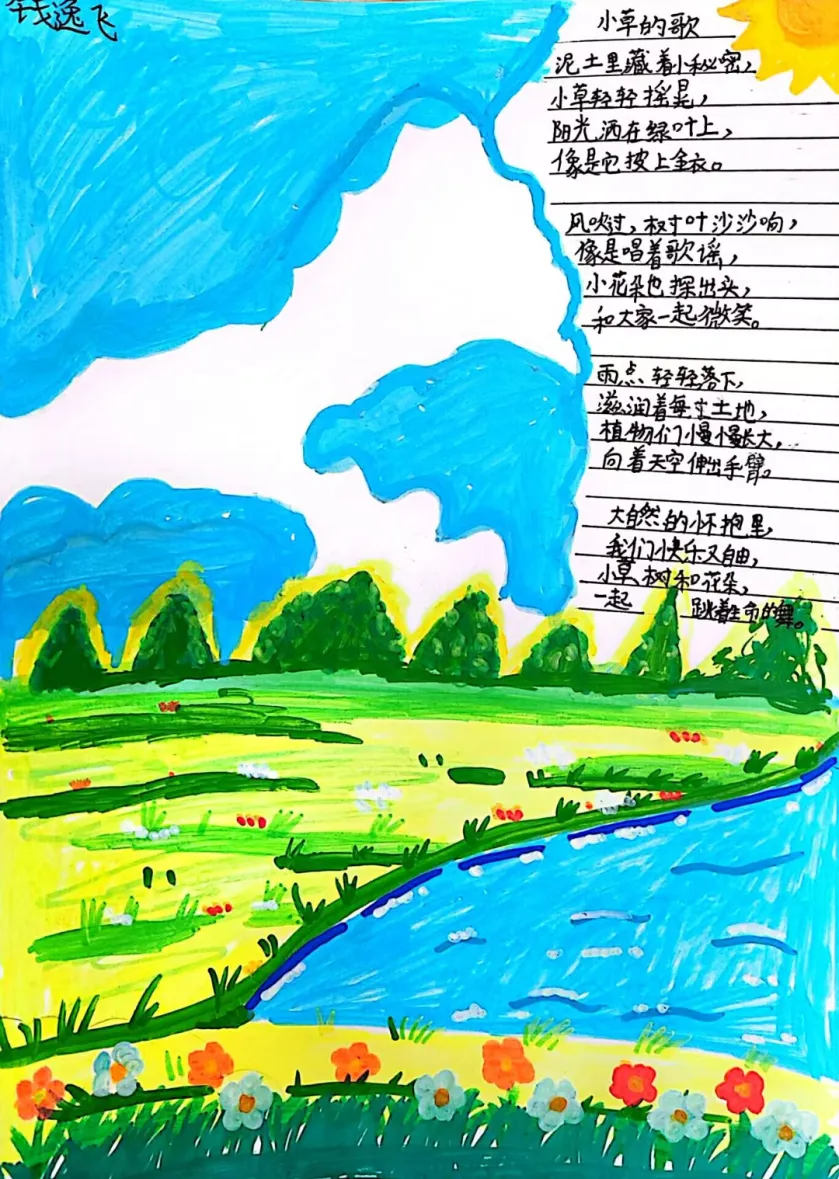 钱逸飞
小草的歌
泥土里藏着小秘密,
小草轻轻摇晃,
阳光洒在绿叶上,
像是它披上金衣。
风吹过,树叶沙沙响,
像是唱着歌谣,
小花朵也探出头,
和大家一起微笑。
雨点轻轻落下,
滋润着每寸土地,
植物们慢慢长大,
向着天空伸出手臂。
大自然的怀抱里,
我们快乐又自由,
小草,树和花朵,
一起 跳着生命的舞。